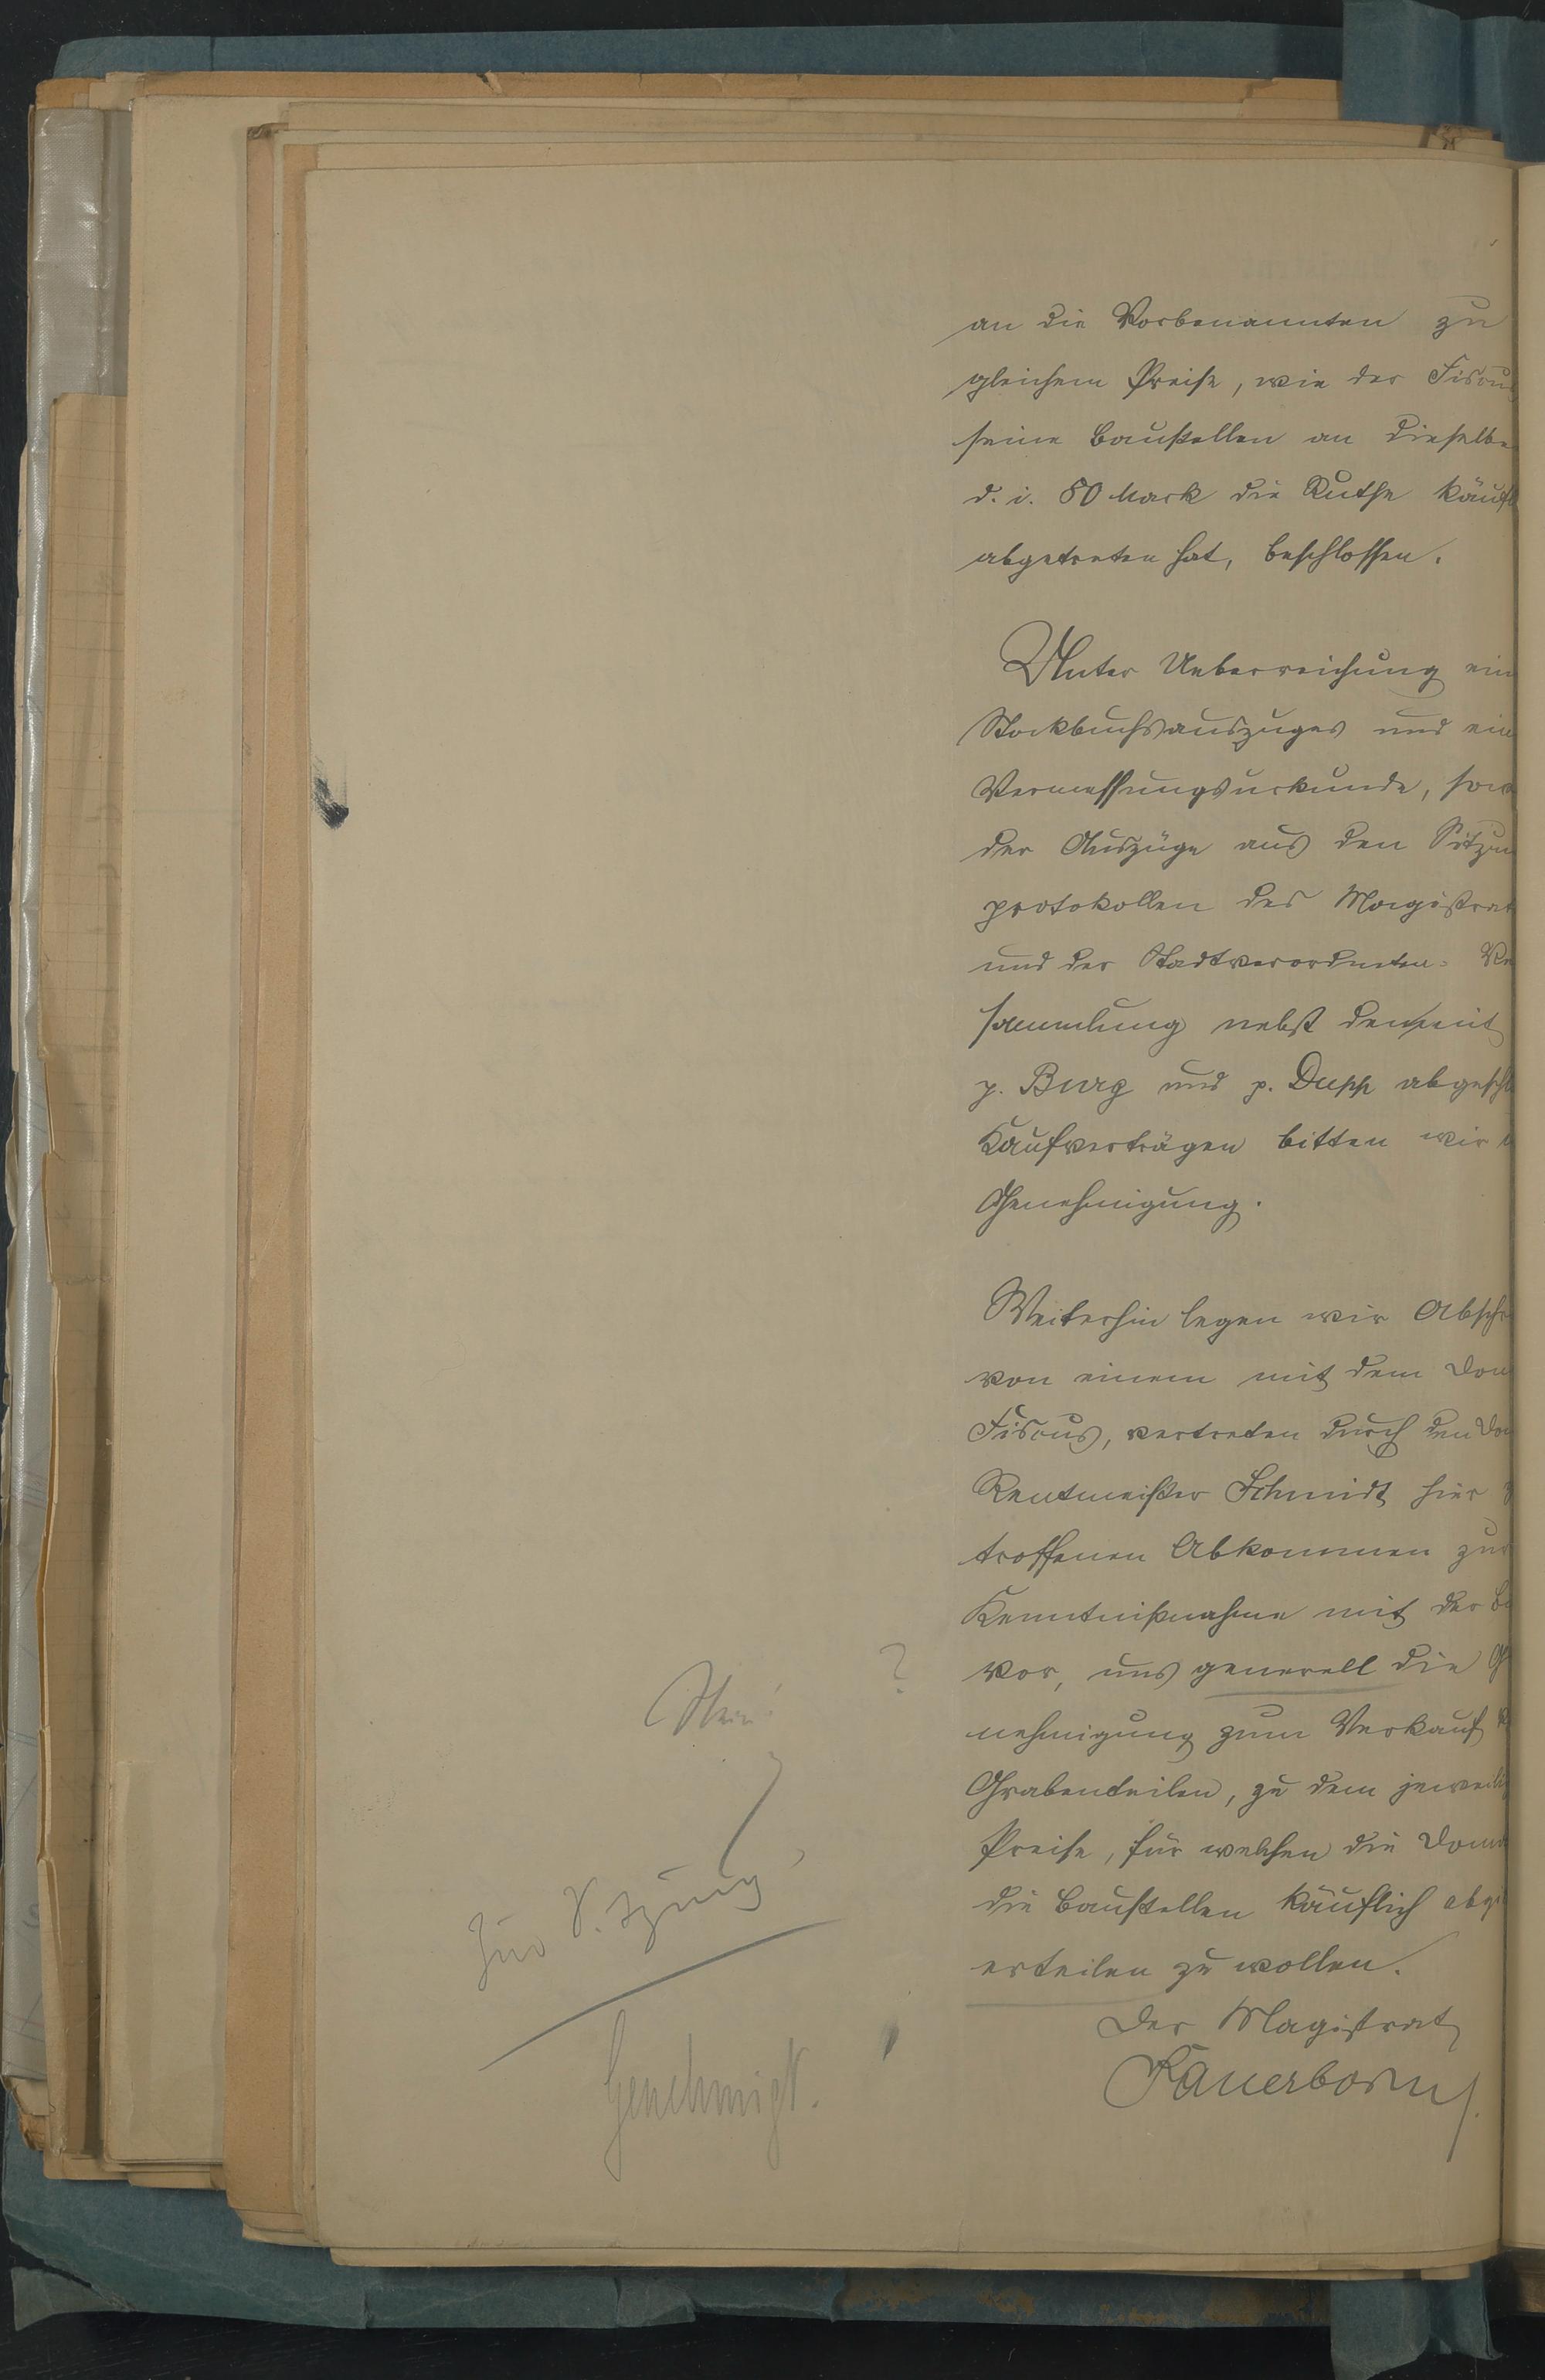 an die Vorbenannten zu
gleichem Preise, wie der Fiscus
seine Baustellen an dieselbe
d. i. 80 Mark die Ruthe käufl
abgetreten hat, beschlossen.
Unter Ueberreichung ein
Stockbuchsauszuges und ein
Vermessungsurkunde, sow
der Auszüge aus den Sitzun
protokollen des Magistrat
und der Stadtverordneten-Ve
sammlung nebst den mit
p. Burg und p. Dupp abgeschl
Kaufverträgen bitten wir
Genehmigung.
Weiterhin legen wir Abschr
von einem mit dem Dom
Fiscus, vertreten durch den Do
Rentmeister Schmidt hier g
troffenen Abkommen zur
Kenntnißnahme mit der B
? vor, uns generell die G
nehmigung zum Verkauf
Grabenteilen, zu dem jeweili
Preise, für welchen die Dom
die Baustellen käuflich abgi
erteilen zu wollen.
Der Magistrat
Kauerborn
Nein!
Zur Sitzung
Genehmigt.